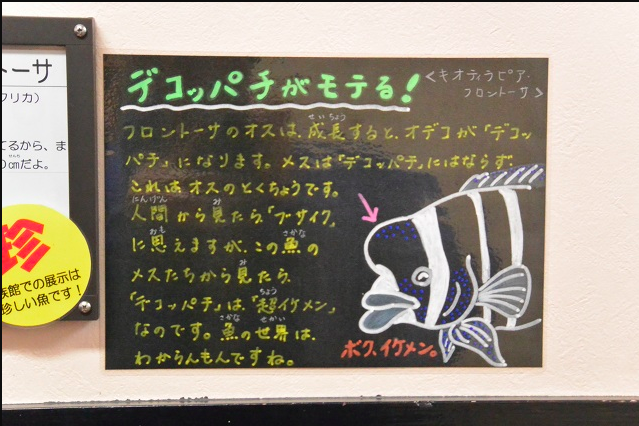 デコッパチがモテる!
<キオティラピア・
フロントーサ>
フロントーサのオスは、成長すると、オデコが「デコッ
せいちょう
パチ」になります。メスは「デコッパチ」にはならず、
これはオスのとくちょうです。
にんげん み
人間から見たら、「ブサイク」
おも さかな
に思えますが、この魚の
み
メスたちから見たら、
ちょう
「デコッパチ」は、「超イケメン」
さかな せかい
なのです。魚の世界は、
わからんもんですね。
ボク、イケメン。
トーサ
フリカ)
てるから、ま
せんち
0㎝だよ。
珍
族館での展示は
珍しい魚です!